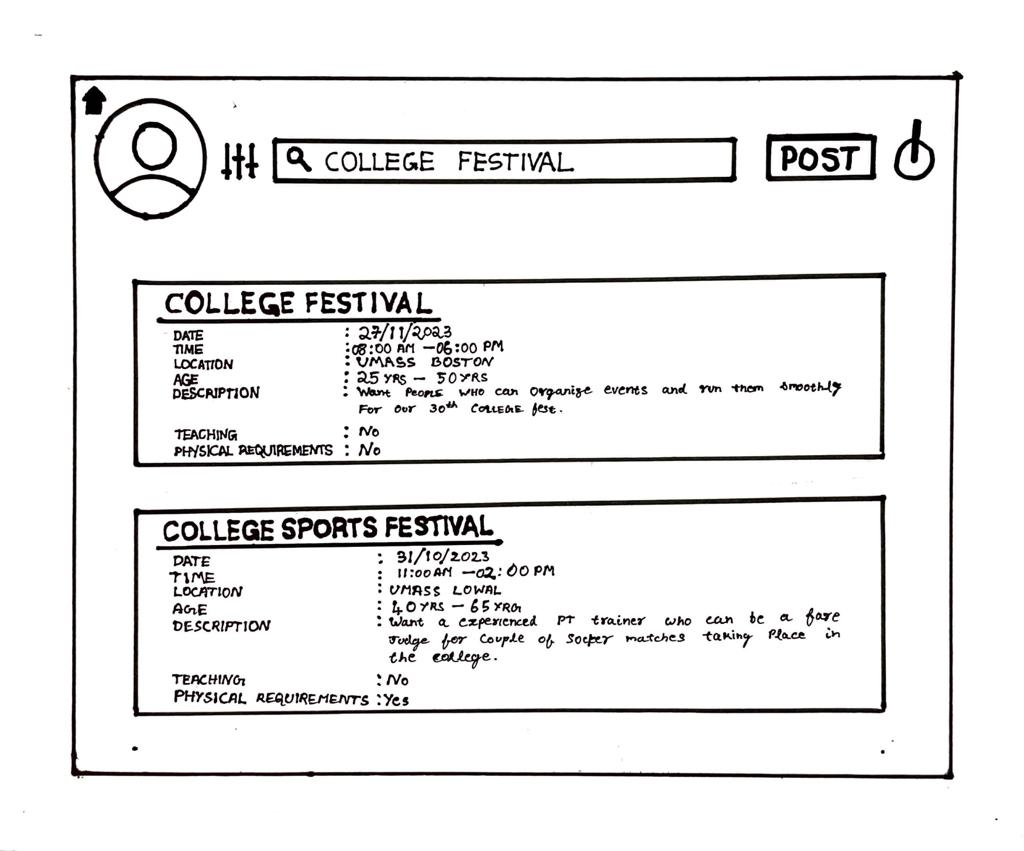 COLLEGE FESTIVAL
POST
COLLEGE FESTIVAL
DATE : 27/11/2023
TIME : 08:00 AM - 06:00 PM
LOCATION : UMASS BOSTON
AGE : 25 YRS - 50 YRS
DESCRIPTION : Want PEOPLE WHO can Organize events and run them smoothly
FOR OUR 30th COLLEGE fest.
TEACHING : No
PHYSICAL REQUIREMENTS : No
COLLEGE SPORTS FESTIVAL
DATE : 31/10/2023
TIME : 11:00 AM - 02:00 PM
LOCATION : UMASS LOWAL
AGE : 40 YRS - 65 YRS
DESCRIPTION : Want a experienced PT trainer who can be a fare
Judge for Couple of Socker matches taking Place in
the college.
TEACHING : No
PHYSICAL REQUIREMENTS : Yes